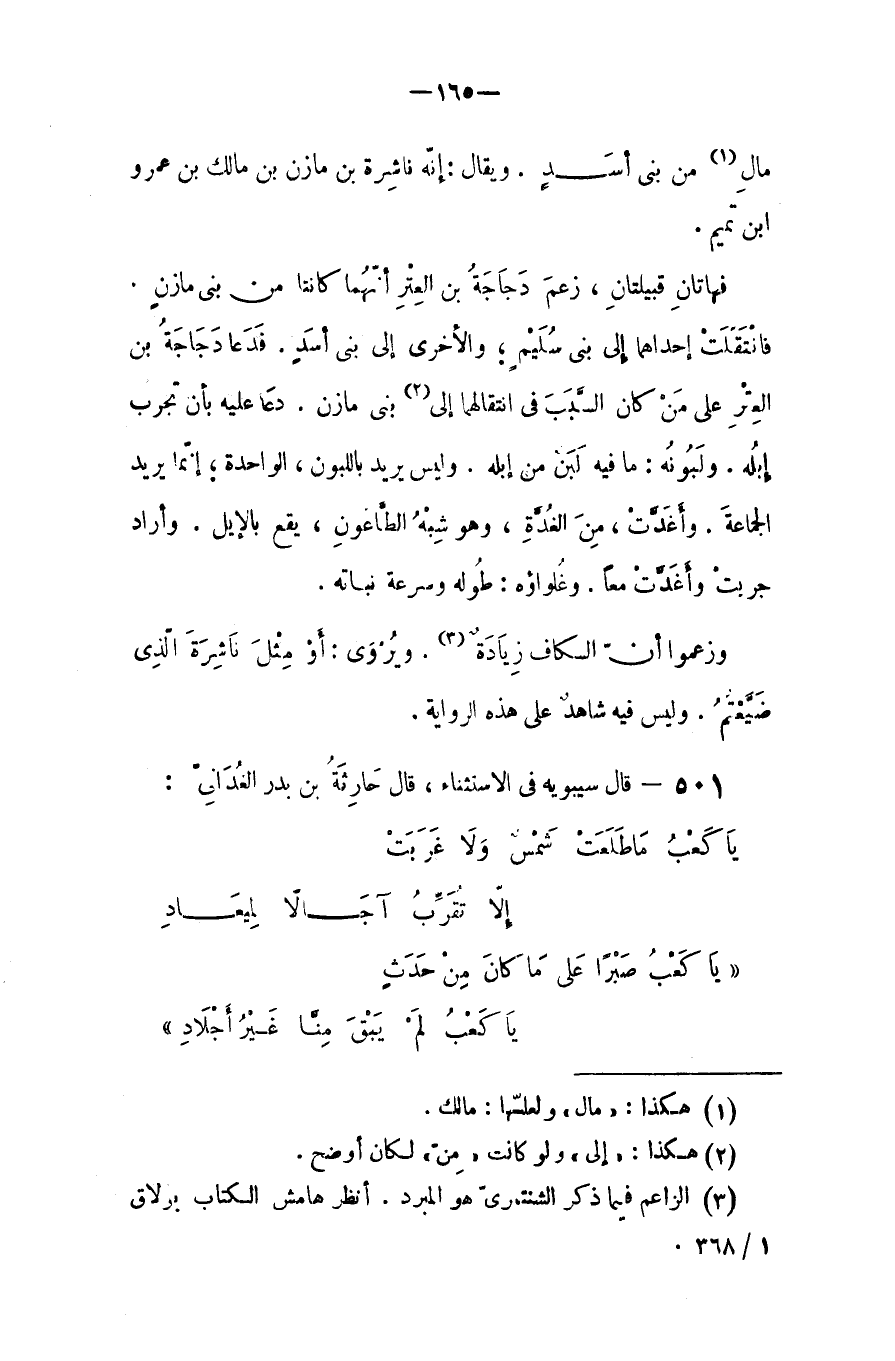 —١٦٥—
مالِ(١) من بنى أسَـــدٍ . ويقال : إنّه ناشِرة بن مازن بن مالك بن عمرو
ابن تميم .
فهاتانِ قبيلتانِ ، زعمَ دَجَاجَةُ بن العِتْرِ أنّهُما كانتا من بنى مازنٍ .
فانْتَقَلَتْ إحداهما إلى بنى سُلَيْمٍ ؛ والأخرى إلى بنى أسَدٍ . فَدَعا دَجَاجَةُ بن
العِتْرِ على مَنْ كان السَّبَبَ فى انتقالهما إلى(٢) بنى مازن . دعَا عليه بأن تجرب
إبلُه . ولَبُونُه : ما فيه لَبَنٌ من إبله . وليس يريد باللبون ، الواحدة ؛ إنّما يريد
الجماعةَ . وأَغَدَّتْ ، مِنَ الغُدَّةِ ، وهو شِبْهُ الطَّاعُونِ ، يقع بالإبل . وأراد
جربتْ وأَغَدَّتْ معاً . وغُلواؤه : طُوله وسرعة نباته .
وزعموا أنّ الكاف زِيَادَةٌ(٣) . ويُرْوَى : أَوْ مِثْلَ نَاشِرَةَ الَّذِى
ضَيَّعْتُمُ . وليس فيه شاهدٌ على هذه الرواية .
٥٠١ — قال سيبويه فى الاستثناء ، قال حَارِثَةُ بن بدر الغُدَانِىّ :
يَا كَعْبُ مَاطَلَعَتْ شَمْسٌ وَلَا غَرَبَتْ
إِلّا تُقَرِّبُ آجَـــالًا لِمِيعَـــادِ
« يَا كَعْبُ صَبْرًا عَلَى مَا كَانَ مِنْ حَدَثٍ
يَا كَعْبُ لَمْ يَبْقَ مِنَّا غَيْرُ أَجْلَادِ »
(١) هكذا : « مال » ولعلّها : مالك .
(٢) هكذا : « إلى » ولو كانت « مِنْ » لكان أوضح .
(٣) الزاعم فيما ذكر الشنتمرىّ هو المبرد . أنظر هامش الكتاب برلاق
١ / ٣٦٨ .